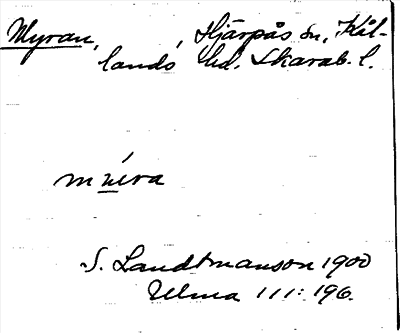 Myran, Hjärpås sn, Kål-
lands hd. Skarab. l.
S. Landtmanson 1900
Ulma 111:196.